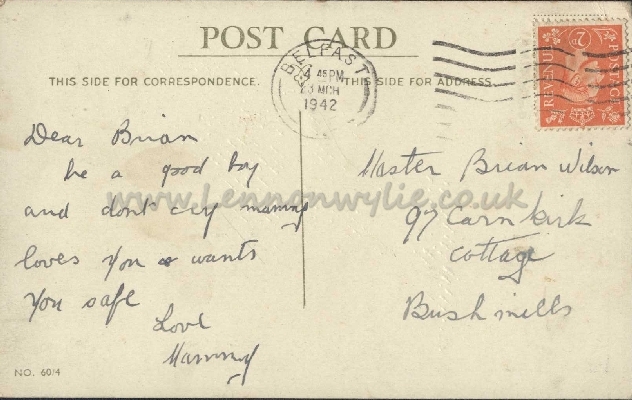 POST CARD
THIS SIDE FOR CORRESPONDENCE.
THIS SIDE FOR ADDRESS
BELFAST
4 45 PM
MCH
1942
REVENUE
POSTAGE
2
Dear Brian
be a good boy
and dont cry mammy
loves you & wants
you safe
Love
Mammy
Master Brian Wilson
97 Carnkirk
Cottage
Bushmills
www.Lennonwylie.co.uk
NO. 60/4